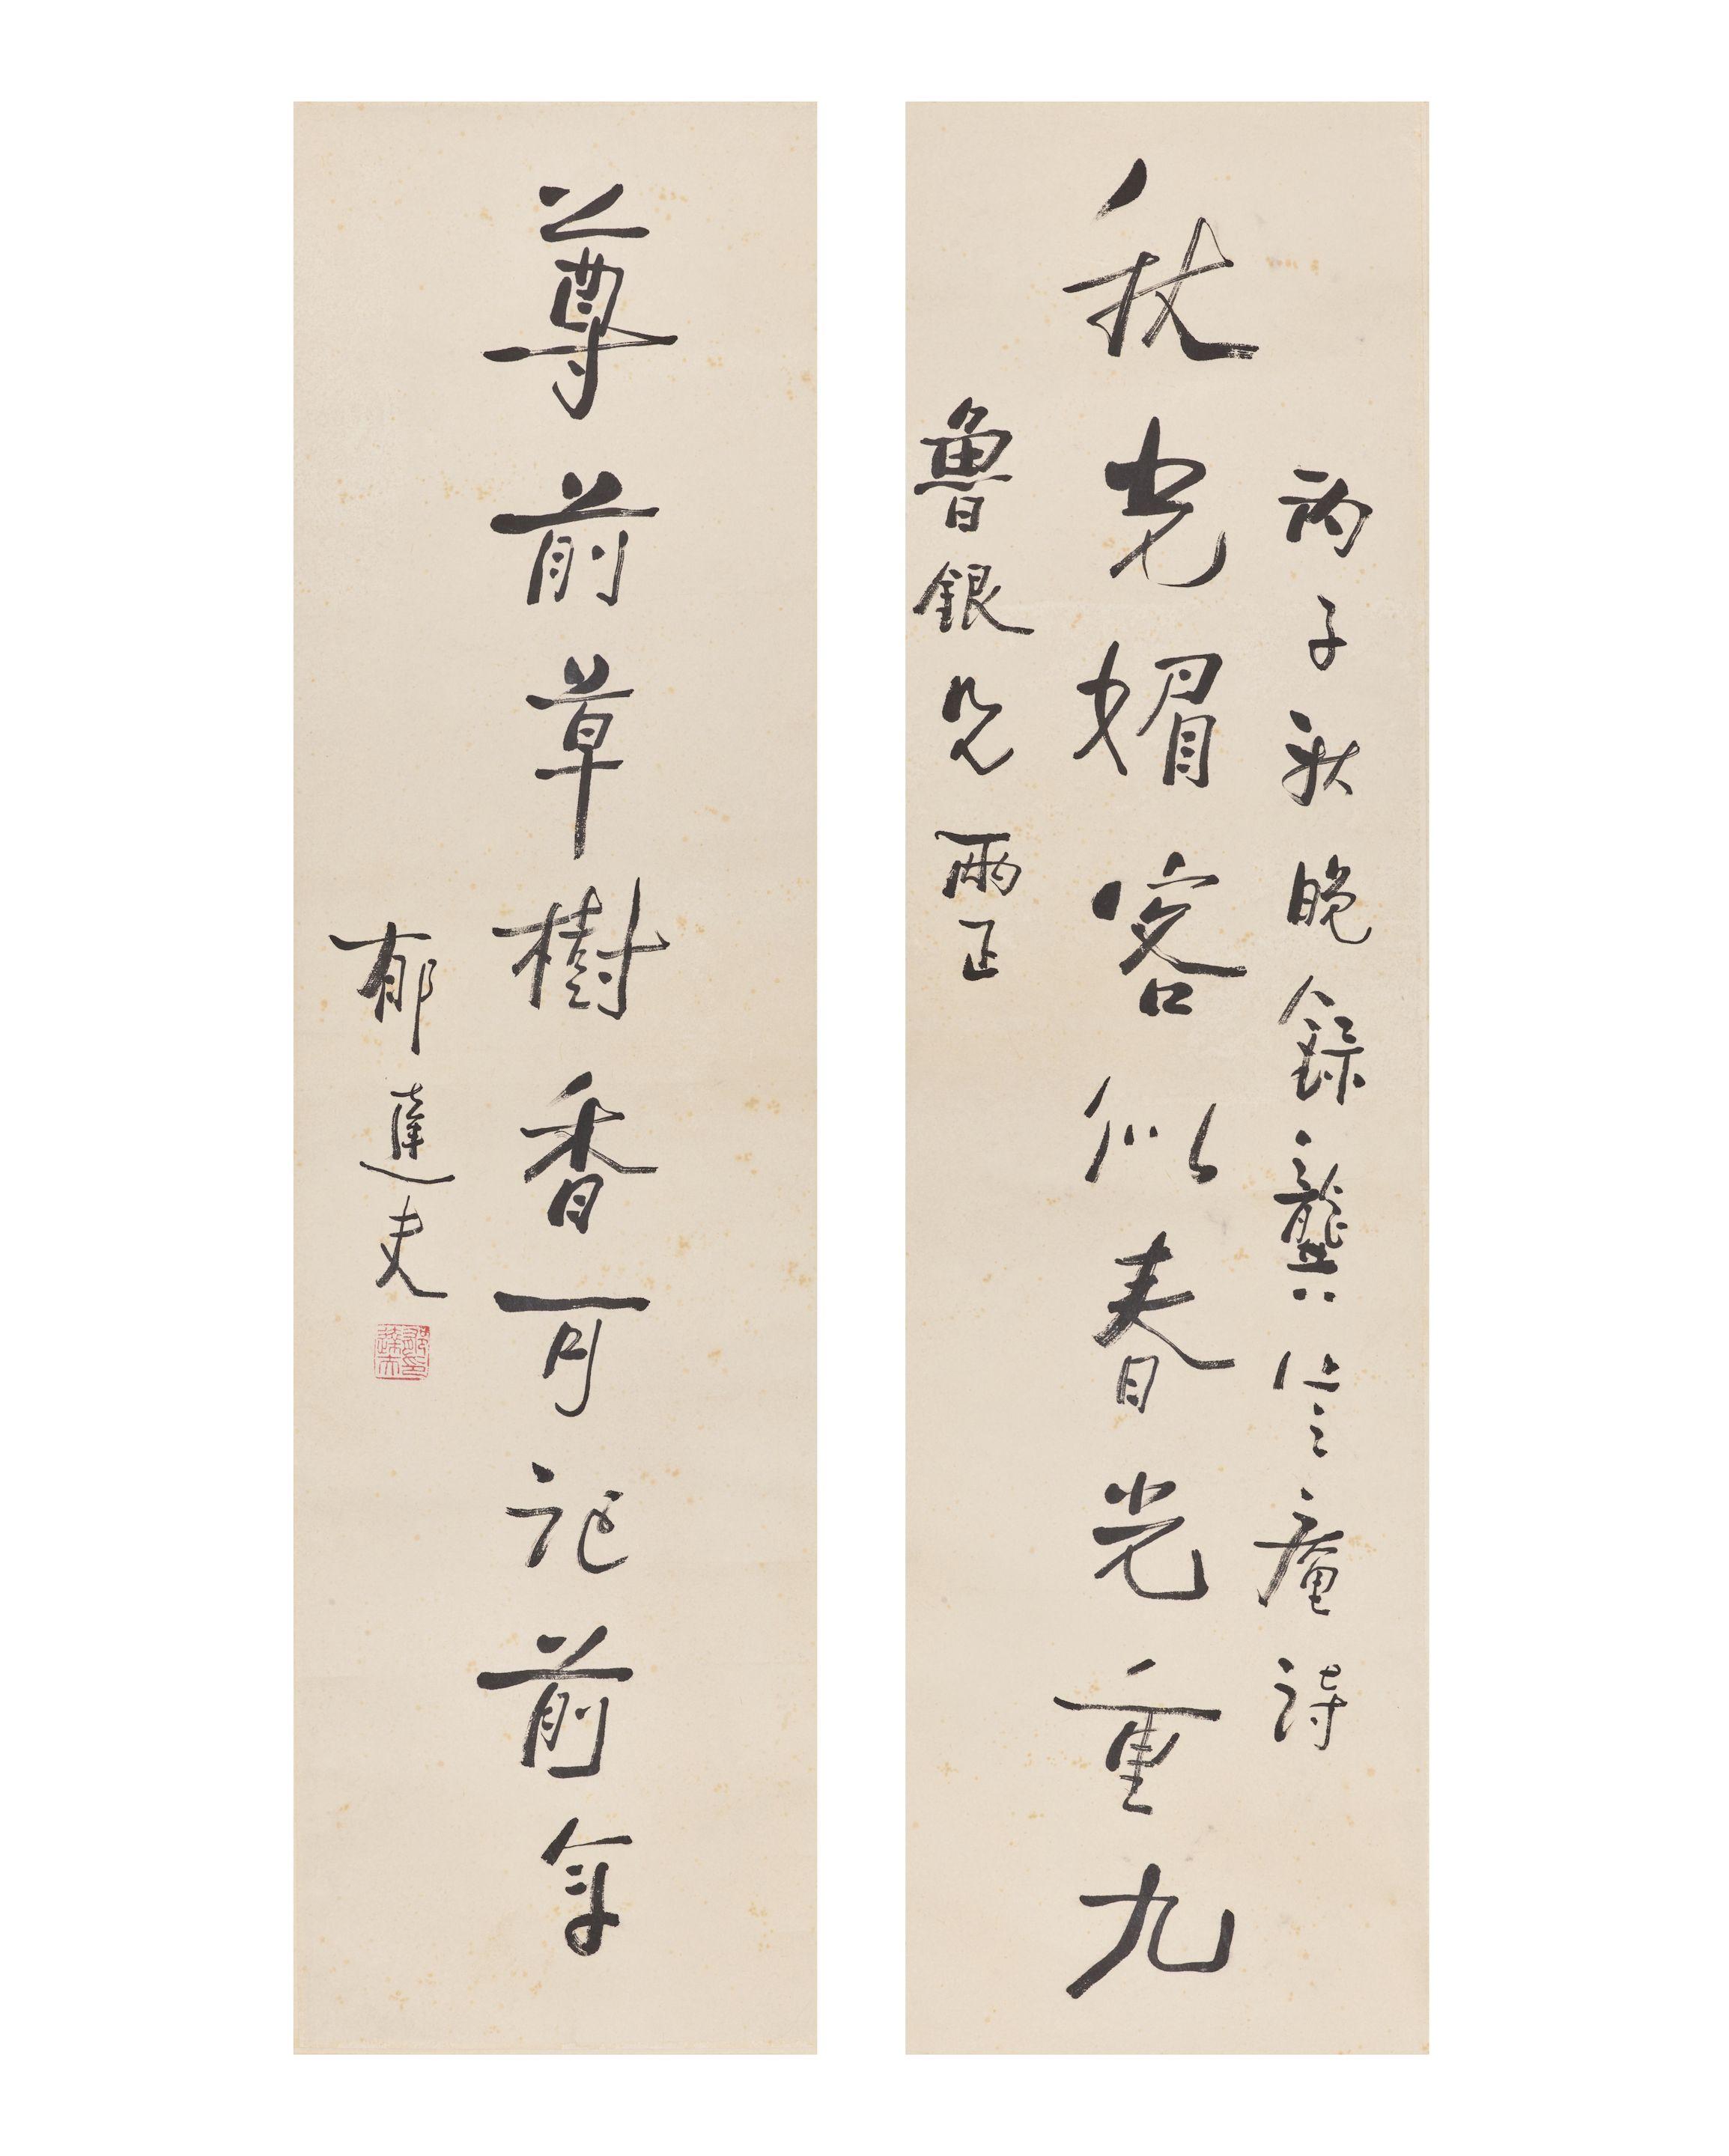 丙子秋晚錄龔定庵詩
秋光媚客似春光重九
魯銀兄兩正
尊前草樹香可記前年
郁達夫